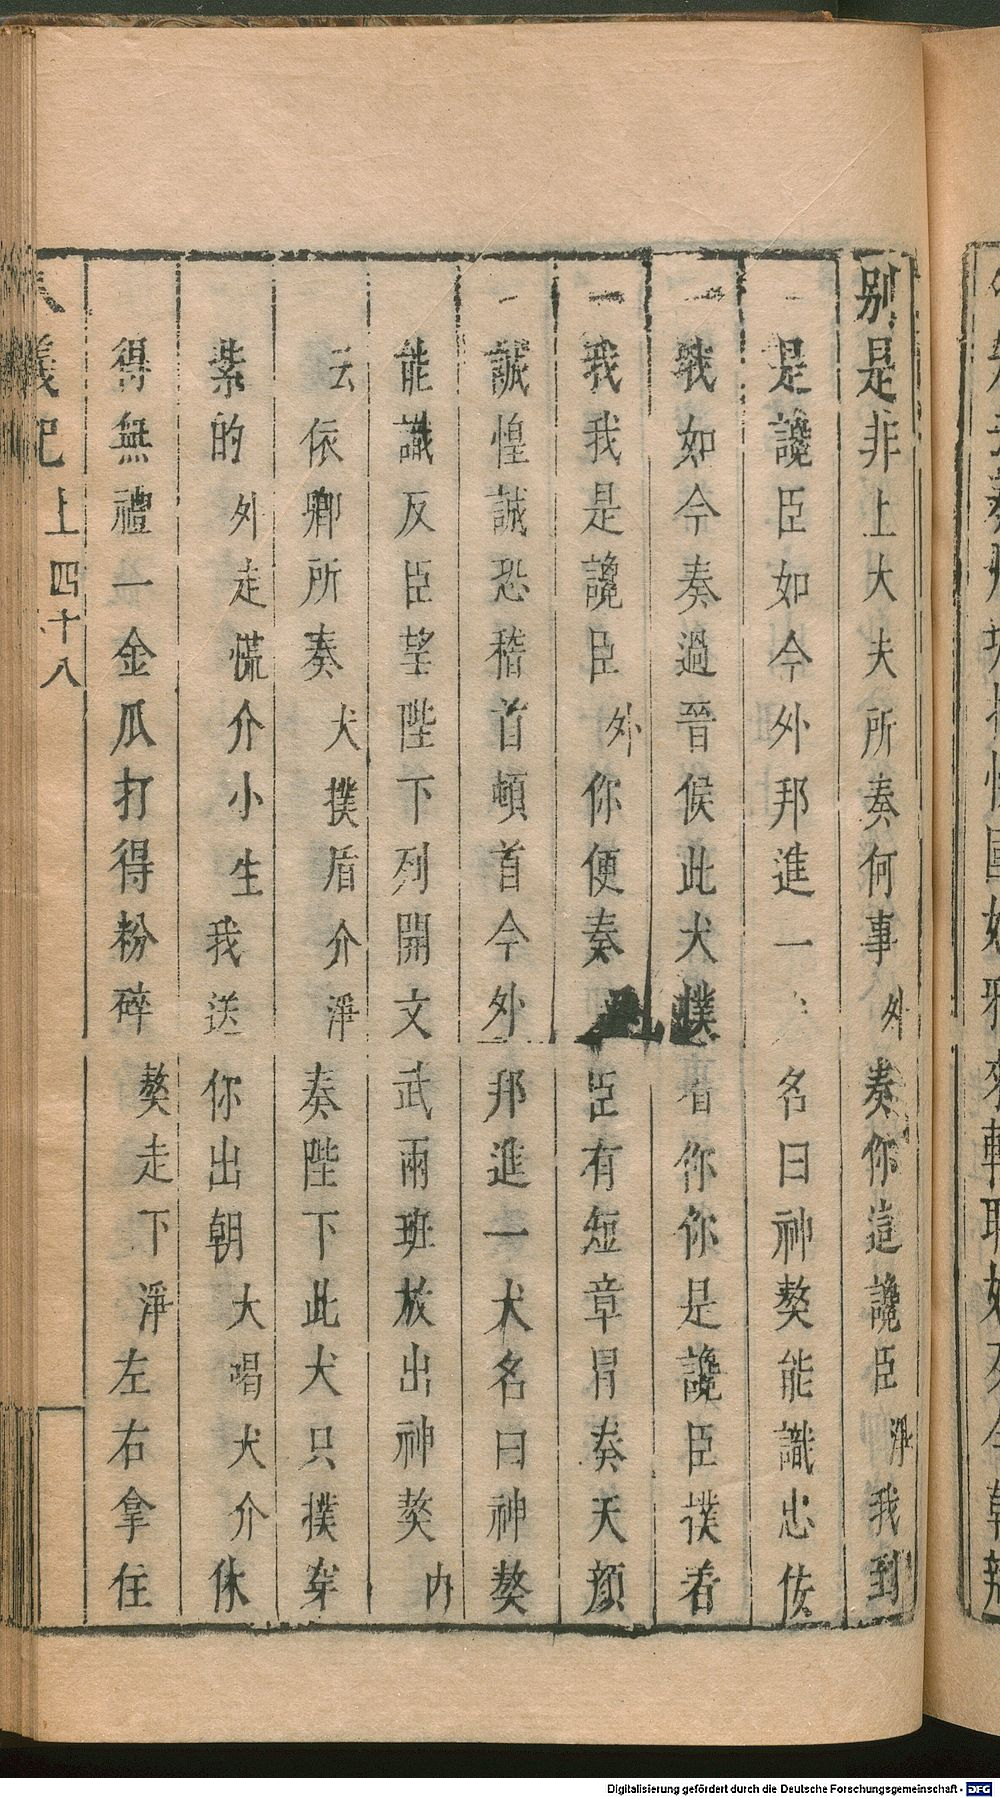 別是非上大夫所奏何事外奏你這讒臣淨我到
是讒臣如今外邦進一名曰神獒能識忠佞
我如今奏過晉侯此犬撲看你你是讒臣撲看
我我是讒臣外你便奏臣有短章冒奏天顔
誠惶誠恐稽首頓首今外邦進一犬名曰神獒
能識反臣望陛下列開文武兩班放出神獒内
云依卿所奏犬撲盾介淨奏陛下此犬只撲穿
紫的外走慌介小生我送你出朝大唱犬介休
得無禮一金瓜打得粉碎獒走下淨左右拿住
八義記上四十八
Digitalisierung gefördert durch die Deutsche Forschungsgemeinschaft - DFG